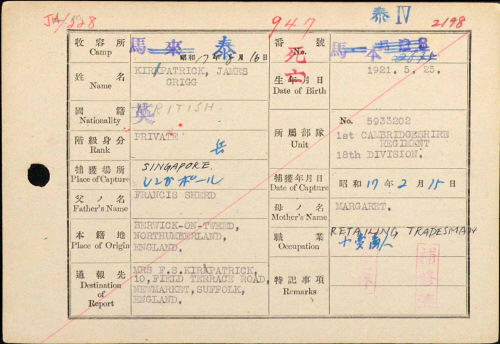 947
泰 IV
2198
收容所
Camp
馬來 泰
昭和17年8月16日
番號
No.
死亡
馬本
姓名
Name
KIRKPATRICK, JAMES
GRIGG
生年月日
Date of Birth
1921. 5. 25.
國籍
Nationality
英
BRITISH.
階級身分
Rank
PRIVATE
兵
所屬部隊
Unit
No. 5933202
1st CAMBRIDGESHIRE
REGIMENT
18th DIVISION.
捕獲場所
Place of Capture
SINGAPORE
捕獲年月日
Date of Capture
昭和 17年 2月 15日
父ノ名
Father's Name
FRANCIS SHERD
母ノ名
Mother's Name
MARGARET.
本籍地
Place of Origin
BERWICK-ON-TWEED,
NORTHUMBERLAND,
ENGLAND.
職業
Occupation
RETAILING TRADESMAN
小賣商人
通報先
Destination of Report
MRS F.S.KIRKPATRICK,
10,FIELD TERRACE ROAD,
NEWMARKET,SUFFOLK,
ENGLAND.
特記事項
Remarks